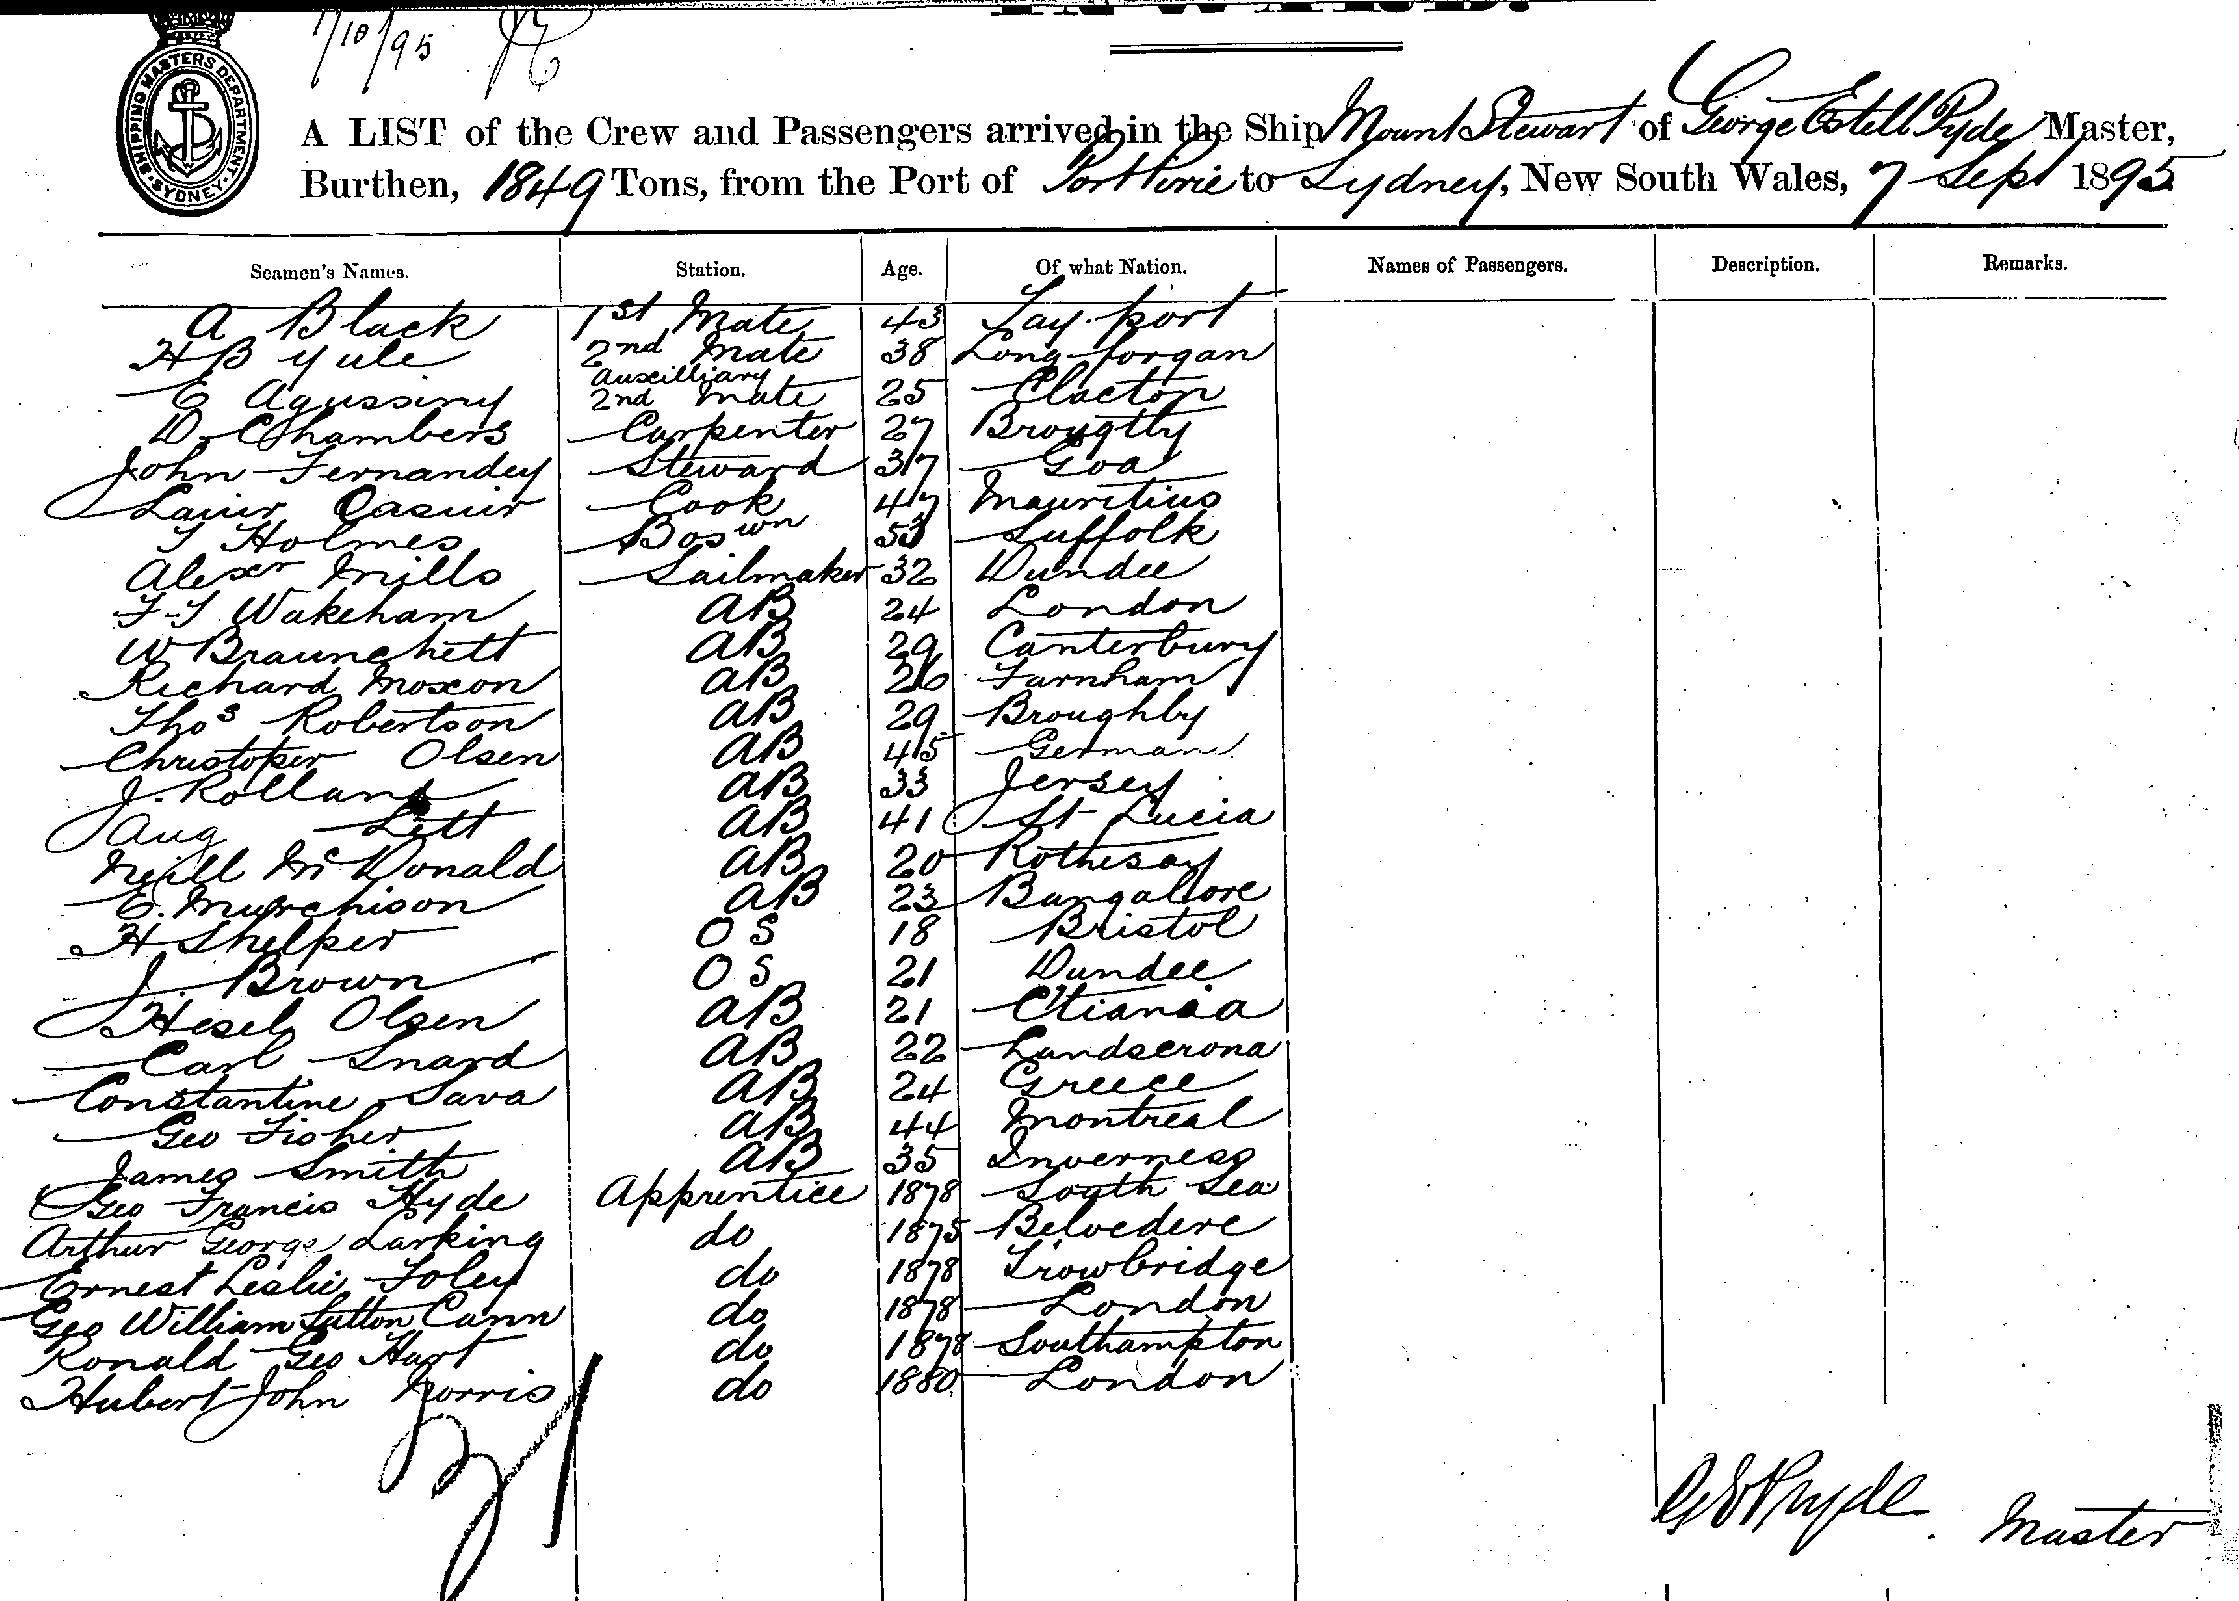 7/10/95
SHIPPING MASTERS DEPARTMENT SYDNEY
A LIST of the Crew and Passengers arrived in the Ship Mount Stewart of George Estell Pyde Master,
Burthen, 1849 Tons, from the Port of Port Pirie to Sydney, New South Wales, 7 Sept 1895
Seamen's Names. Station. Age. Of what Nation. Names of Passengers. Description. Remarks.
A Black 1st Mate 43 Tay-port
H B Yule 2nd Mate 38 Long-forgan
E Agussiny Auxilliary 2nd Mate 25 Clacton
D. Chambers Carpenter 27 Brougtty
John Fernandey Steward 37 Goa
Cook 47 Mauritius
T Holmes Bos wn 53 Suffolk
Alexr Mills Sailmaker 32 Dundee
F. T Wakeham AB 24 London
W Braunchett AB 29 Canterbury
Richard Moxon AB 26 Farnham
Thos Robertson AB 29 Broughby
Christoper Olsen AB 45 German
J. Rolland AB 33 Jersey
Aug Lett AB 41 St Lucia
Neill McDonald AB 20 Rothesay
E. Murchison AB 23 Bangallore
H Shelper OS 18 Bristol
J. Brown OS 21 Dundee
Olsen AB 21
Carl Snard AB 22 Landscrona
Constantine Sava AB 24 Greece
Geo Fisher AB 44 Montreal
James Smith AB 35 Inverness
Geo Francis Hyde Apprentice 1878 South Sea
Arthur George Larking do 1875 Belvedere
Ernest Leslie Foley do 1878 Trowbridge
Geo William Sutton Cann do 1878 London
Ronald Geo Hart do 1878 Southampton
Hubert John Norris do 1880 London
G E Pryde Master